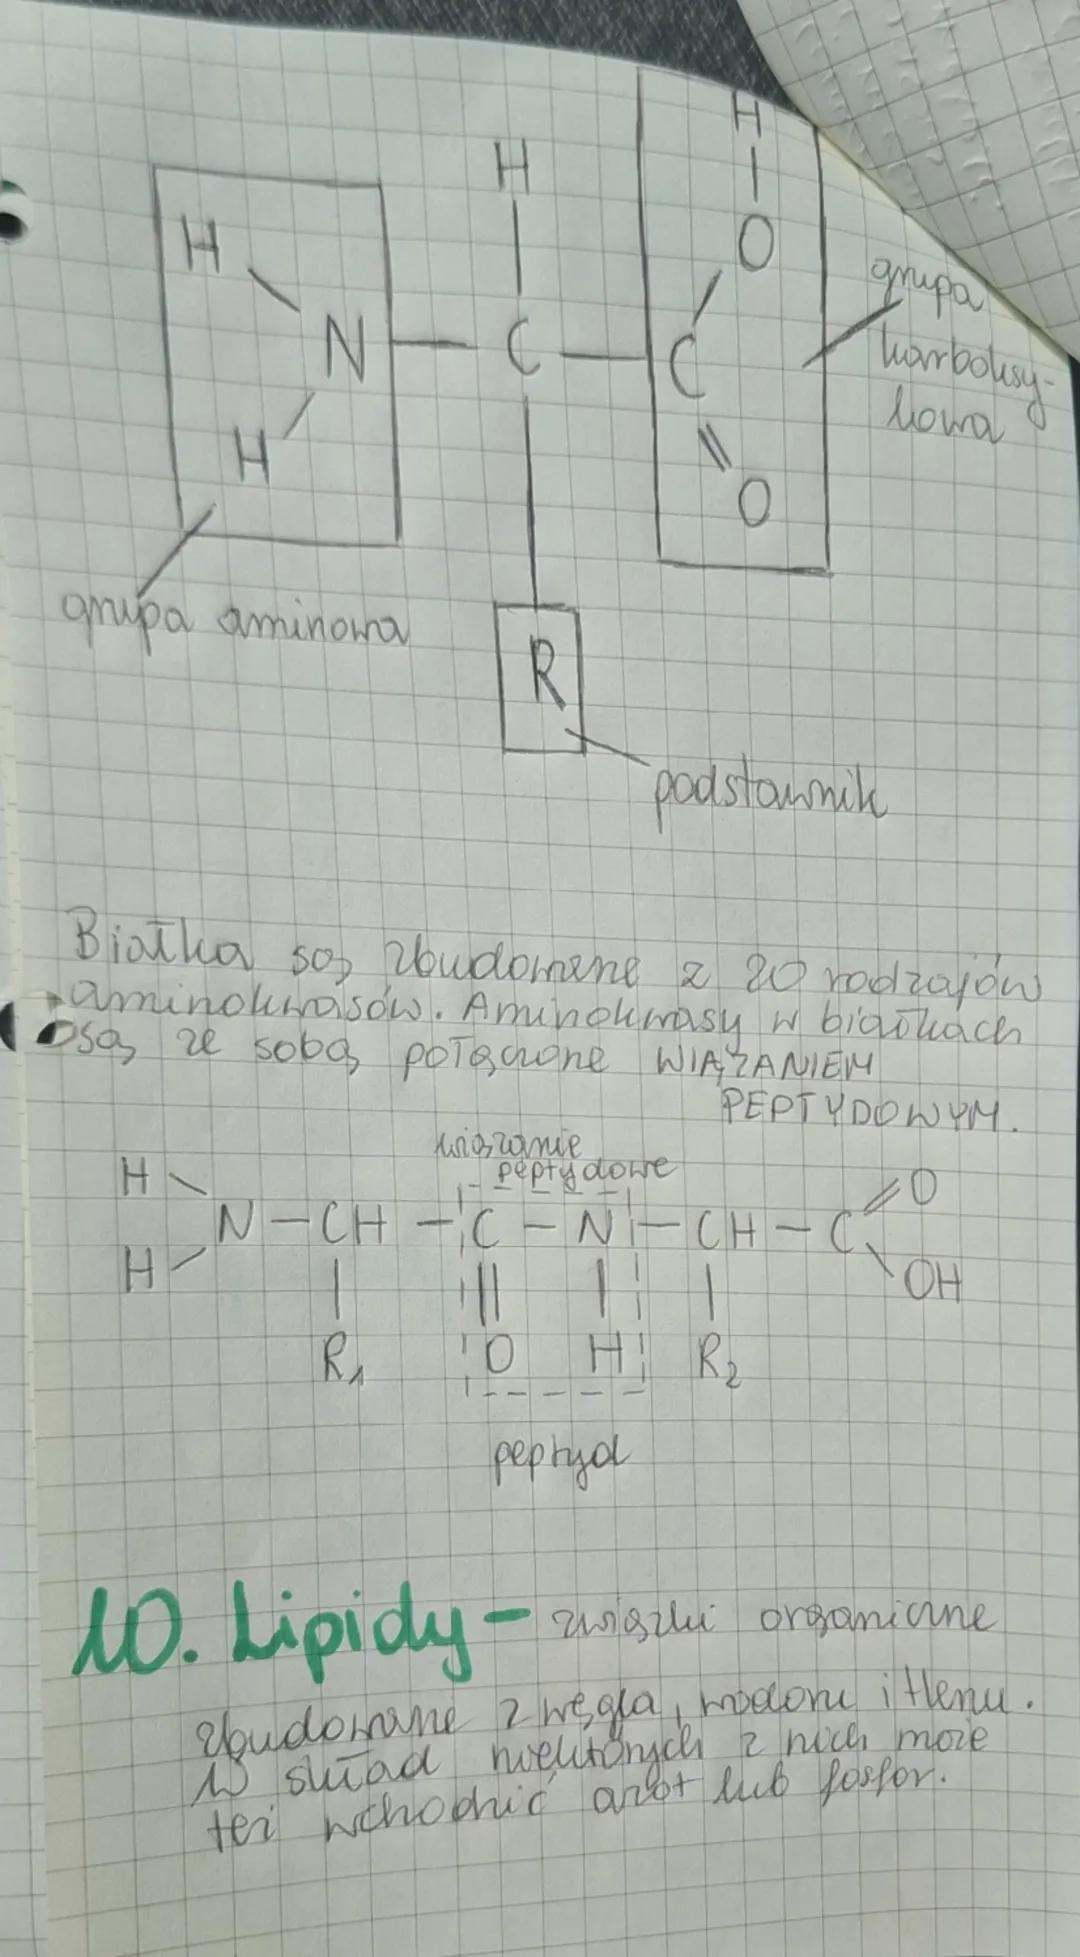 H
H
H
O
N
C
C
H
O
grupa
karboksy-
lowa
grupa aminowa
R
podstawnik
Białka są zbudowane z 20 rodzajów
aminokwasów. Aminokwasy w białkach
są ze sobą połączone WIĄZANIEM
PEPTYDOWYM.
wiązanie
peptydowe
H
N — CH — C — N — CH — C
O
H
OH
R1 O H R2
peptyd
10. Lipidy - związki organiczne
zbudowane z węgla, wodoru i tlenu.
W skład niektórych z nich może
też wchodzić azot lub fosfor.